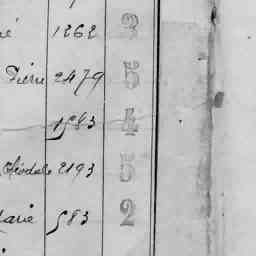 é 1262 3
Pierre 2479 5
1583 4
Théodule 2193 5
Marie 583 2